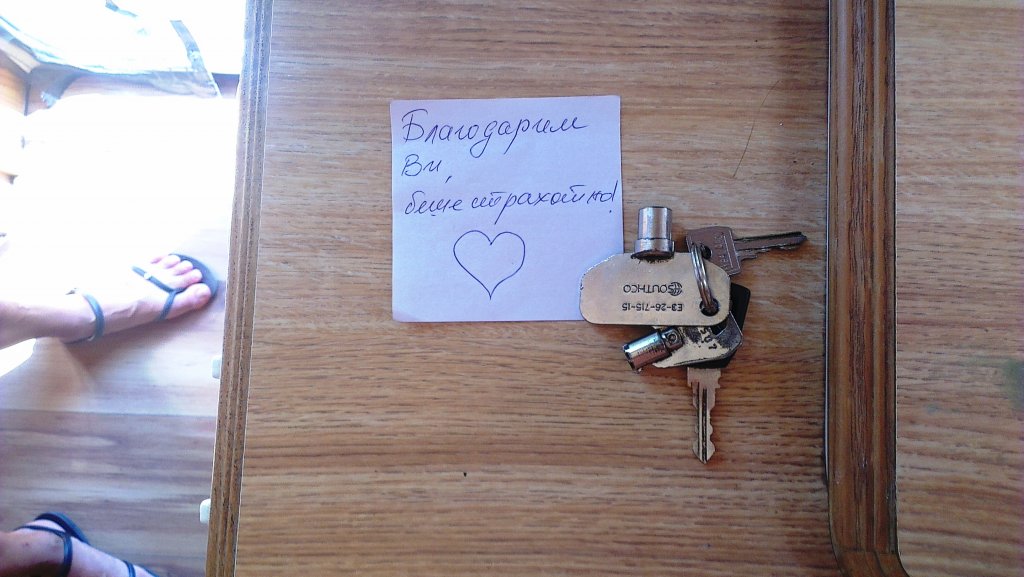 Благодарим
Ви,
беше страхотно!
SOUTHCO
E3-26-715-15